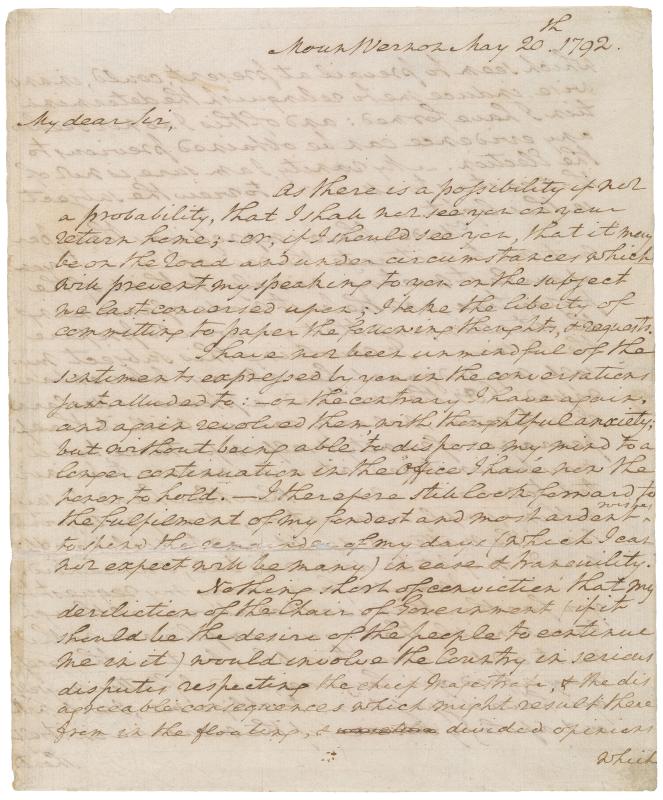 Mount Vernon May 20th. 1792.
My dear Sir,
As there is a possibility if not
a probability, that I shall not see you on your
return home;—or, if I should see you, that it may
be on the road and under circumstances which
will prevent my speaking to you on the subject
we last conversed upon; I take the liberty of
committing to paper the following thoughts, & requests.
I have not been unmindful of the
sentiments expressed by you in the conversations
just alluded to:—on the contrary I have again,
and again revolved them, with thoughtful anxiety;
but without being able to dispose my mind to a
longer continuation in the Office I have now the
honor to hold.—I therefore still look forward to
the fulfilment of my fondest and most ardent wishes
to spend the remainder of my days (which I can
not expect will be many) in ease & tranquility.
Nothing short of conviction that my
deriliction of the Chair of Government (if it
should be the desire of the people to continue
me in it) would involve the Country in serious
disputes respecting the chief Magestrate, & the dis
agreeable consequences which might result there
from in the floating, & divided opinions
which